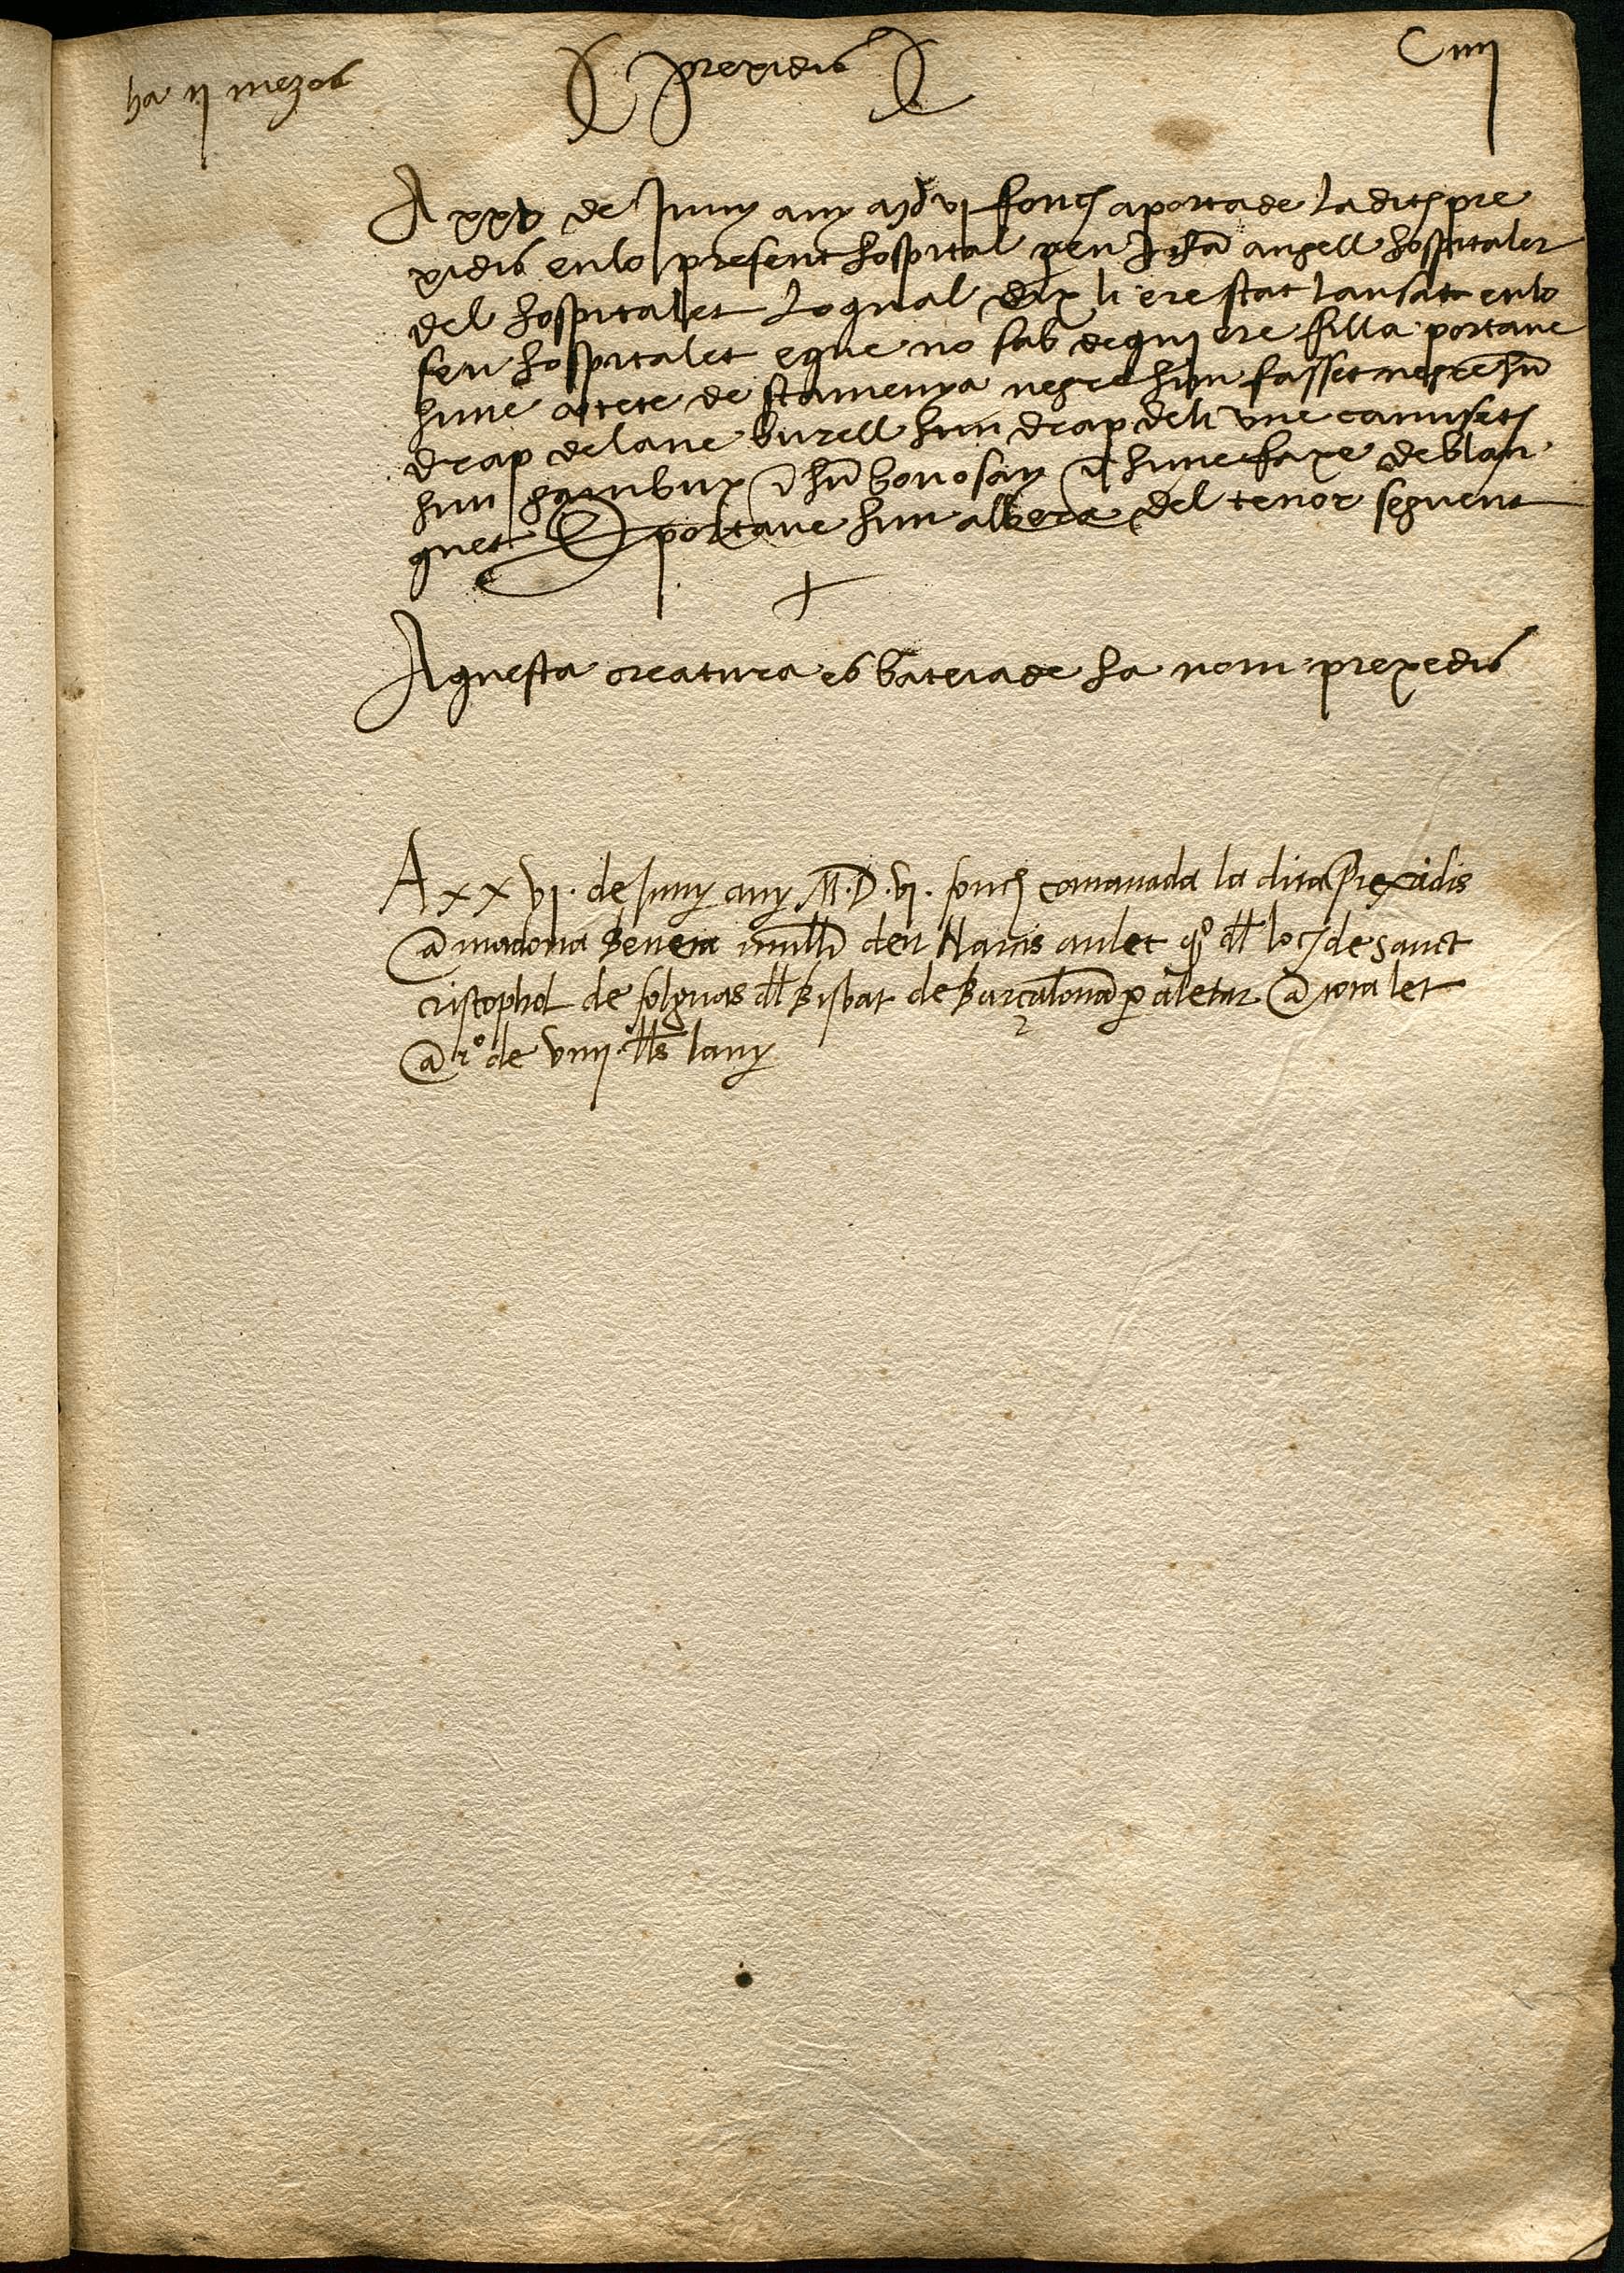 ha ii mezos
prexidis
Ciiii
A xxv de Juny any mdvi fonch aportade la dita pre
xidis en lo present hospital per Johan angell hospitaler
del hospitalet lo qual dix li ere stat lansat en lo
seu hospitalet e que no sab de qui ere filla portave
hune de stamenya negre hun fasset negre hun
drap de lane burell hun drap de li une camiseta
hun gambux e hun bovosay e hune faxe de blan
quet E portave hun albera del tenor seguent
+
Aquesta creatura es bateiade ha nom prexedis
A xxvi. de Juny any M.D.vi. fonch comanada la dita Prexidis
a madona muller den Narcis aulet qº del loch de sanct
cristophol de del bisbat de Barcalona per aletar a tota let
a rº de viiii. lls lany